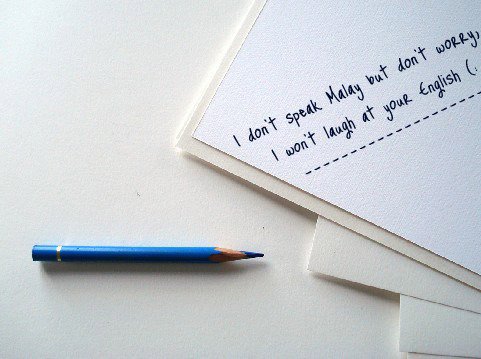 I don't speak Malay but don't worry,
I won't laugh at your English (.